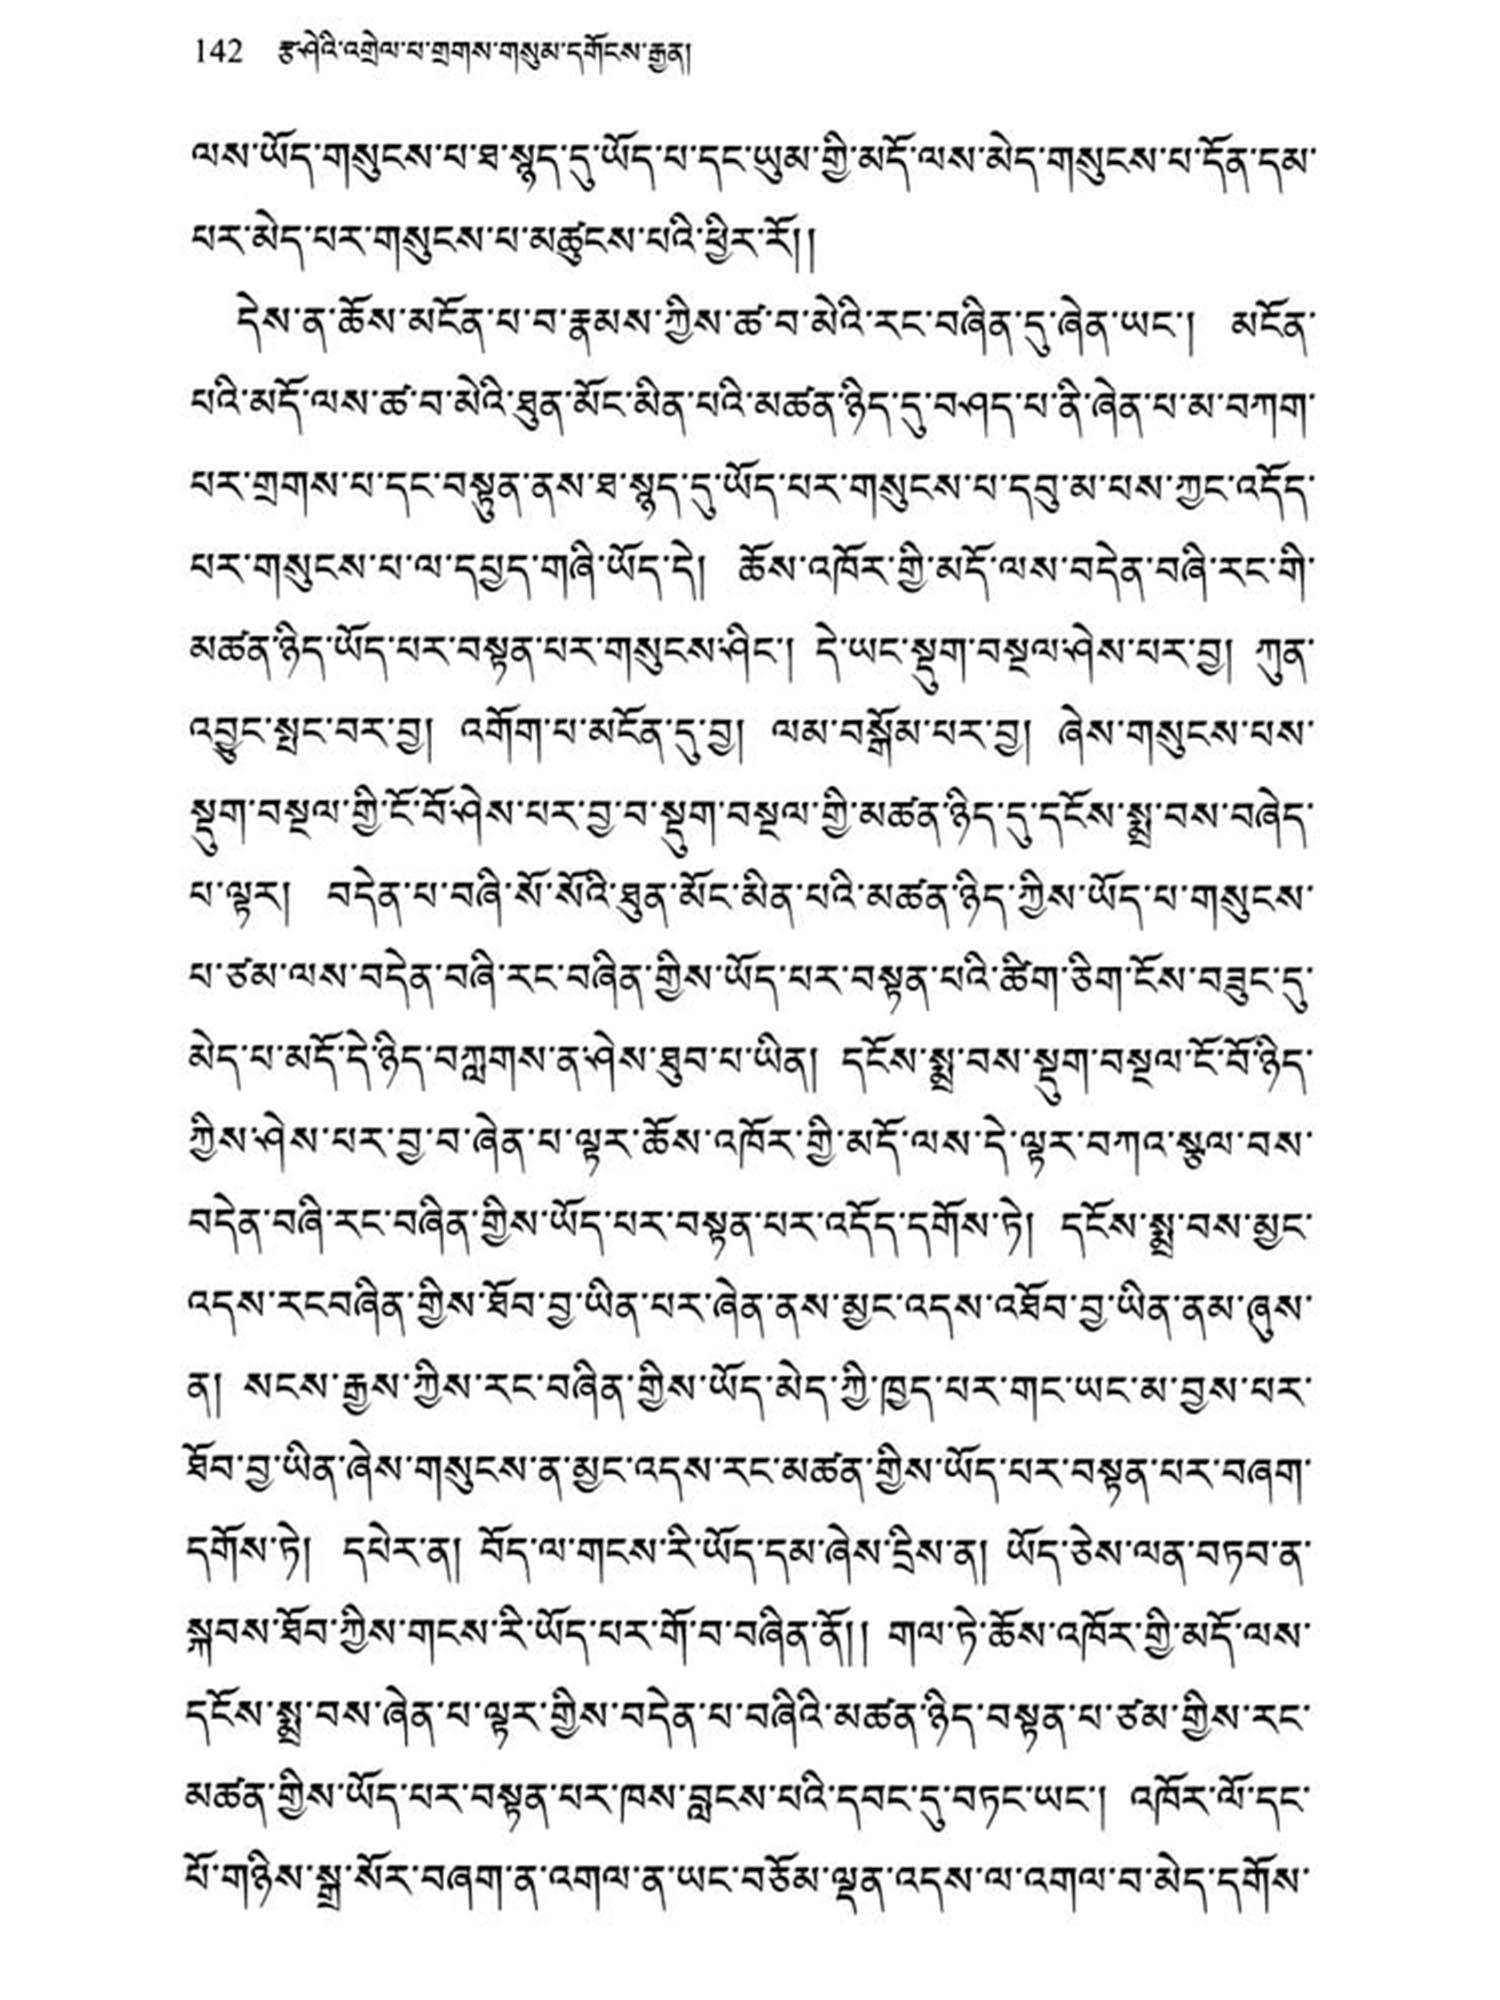 142 རྩ་ཤེའི་འགྲེལ་པ་གྲགས་གསུམ་དགོངས་རྒྱན།
ལས་ཡོད་གསུངས་པ་ཐ་སྙད་དུ་ཡོད་པ་དང་ཡུམ་གྱི་མདོ་ལས་མེད་གསུངས་པ་དོན་དམ་
པར་མེད་པར་གསུངས་པ་མཚུངས་པའི་ཕྱིར་རོ།།
དེས་ན་ཆོས་མངོན་པ་བ་རྣམས་ཀྱིས་ཚ་བ་མེའི་རང་བཞིན་དུ་ཞེན་ཡང་། མངོན་
པའི་མདོ་ལས་ཚ་བ་མེའི་ཐུན་མོང་མིན་པའི་མཚན་ཉིད་དུ་བཤད་པ་ནི་ཞེན་པ་མ་བཀག་
པར་གྲགས་པ་དང་བསྟུན་ནས་ཐ་སྙད་དུ་ཡོད་པར་གསུངས་པ་དབུ་མ་པས་ཀྱང་འདོད་
པར་གསུངས་པ་ལ་དཔྱད་གཞི་ཡོད་དེ། ཆོས་འཁོར་གྱི་མདོ་ལས་བདེན་བཞི་རང་གི་
མཚན་ཉིད་ཡོད་པར་བསྟན་པར་གསུངས་ཤིང་། དེ་ཡང་སྡུག་བསྔལ་ཤེས་པར་བྱ། ཀུན་
འབྱུང་སྤང་བར་བྱ། འགོག་པ་མངོན་དུ་བྱ། ལམ་བསྒོམ་པར་བྱ། ཞེས་གསུངས་པས་
སྡུག་བསྔལ་གྱི་ངོ་བོ་ཤེས་པར་བྱ་བ་སྡུག་བསྔལ་གྱི་མཚན་ཉིད་དུ་དངོས་སྨྲ་བས་བཞེད་
པ་ལྟར། བདེན་པ་བཞི་སོ་སོའི་ཐུན་མོང་མིན་པའི་མཚན་ཉིད་ཀྱིས་ཡོད་པ་གསུངས་
པ་ཙམ་ལས་བདེན་བཞི་རང་བཞིན་གྱིས་ཡོད་པར་བསྟན་པའི་ཚིག་ཅིག་ངོས་བཟུང་དུ་
མེད་པ་མདོ་དེ་ཉིད་བཀླགས་ན་ཤེས་ཐུབ་པ་ཡིན། དངོས་སྨྲ་བས་སྡུག་བསྔལ་ངོ་བོ་ཉིད་
ཀྱིས་ཤེས་པར་བྱ་བ་ཞེན་པ་ལྟར་ཆོས་འཁོར་གྱི་མདོ་ལས་དེ་ལྟར་བཀའ་སྩལ་བས་
བདེན་བཞི་རང་བཞིན་གྱིས་ཡོད་པར་བསྟན་པར་འདོད་དགོས་ཏེ། དངོས་སྨྲ་བས་མྱང་
འདས་རངབཞིན་གྱིས་ཐོབ་བྱ་ཡིན་པར་ཞེན་ནས་མྱང་འདས་འཐོབ་བྱ་ཡིན་ནམ་ཞུས་
ན། སངས་རྒྱས་ཀྱིས་རང་བཞིན་གྱིས་ཡོད་མེད་ཀྱི་ཁྱད་པར་གང་ཡང་མ་བྱས་པར་
ཐོབ་བྱ་ཡིན་ཞེས་གསུངས་ན་མྱང་འདས་རང་མཚན་གྱིས་ཡོད་པར་བསྟན་པར་བཞག་
དགོས་ཏེ། དཔེར་ན། བོད་ལ་གངས་རི་ཡོད་དམ་ཞེས་དྲིས་ན། ཡོད་ཅེས་ལན་བཏབ་ན་
སྐབས་ཐོབ་ཀྱིས་གངས་རི་ཡོད་པར་གོ་བ་བཞིན་ནོ།། གལ་ཏེ་ཆོས་འཁོར་གྱི་མདོ་ལས་
དངོས་སྨྲ་བས་ཞེན་པ་ལྟར་གྱིས་བདེན་པ་བཞིའི་མཚན་ཉིད་བསྟན་པ་ཙམ་གྱིས་རང་
མཚན་གྱིས་ཡོད་པར་བསྟན་པར་ཁས་བླངས་པའི་དབང་དུ་བཏང་ཡང་། འཁོར་ལོ་དང་
པོ་གཉིས་སྒྲ་སོར་བཞག་ན་འགལ་ན་ཡང་བཅོམ་ལྡན་འདས་ལ་འགལ་བ་མེད་དགོས་